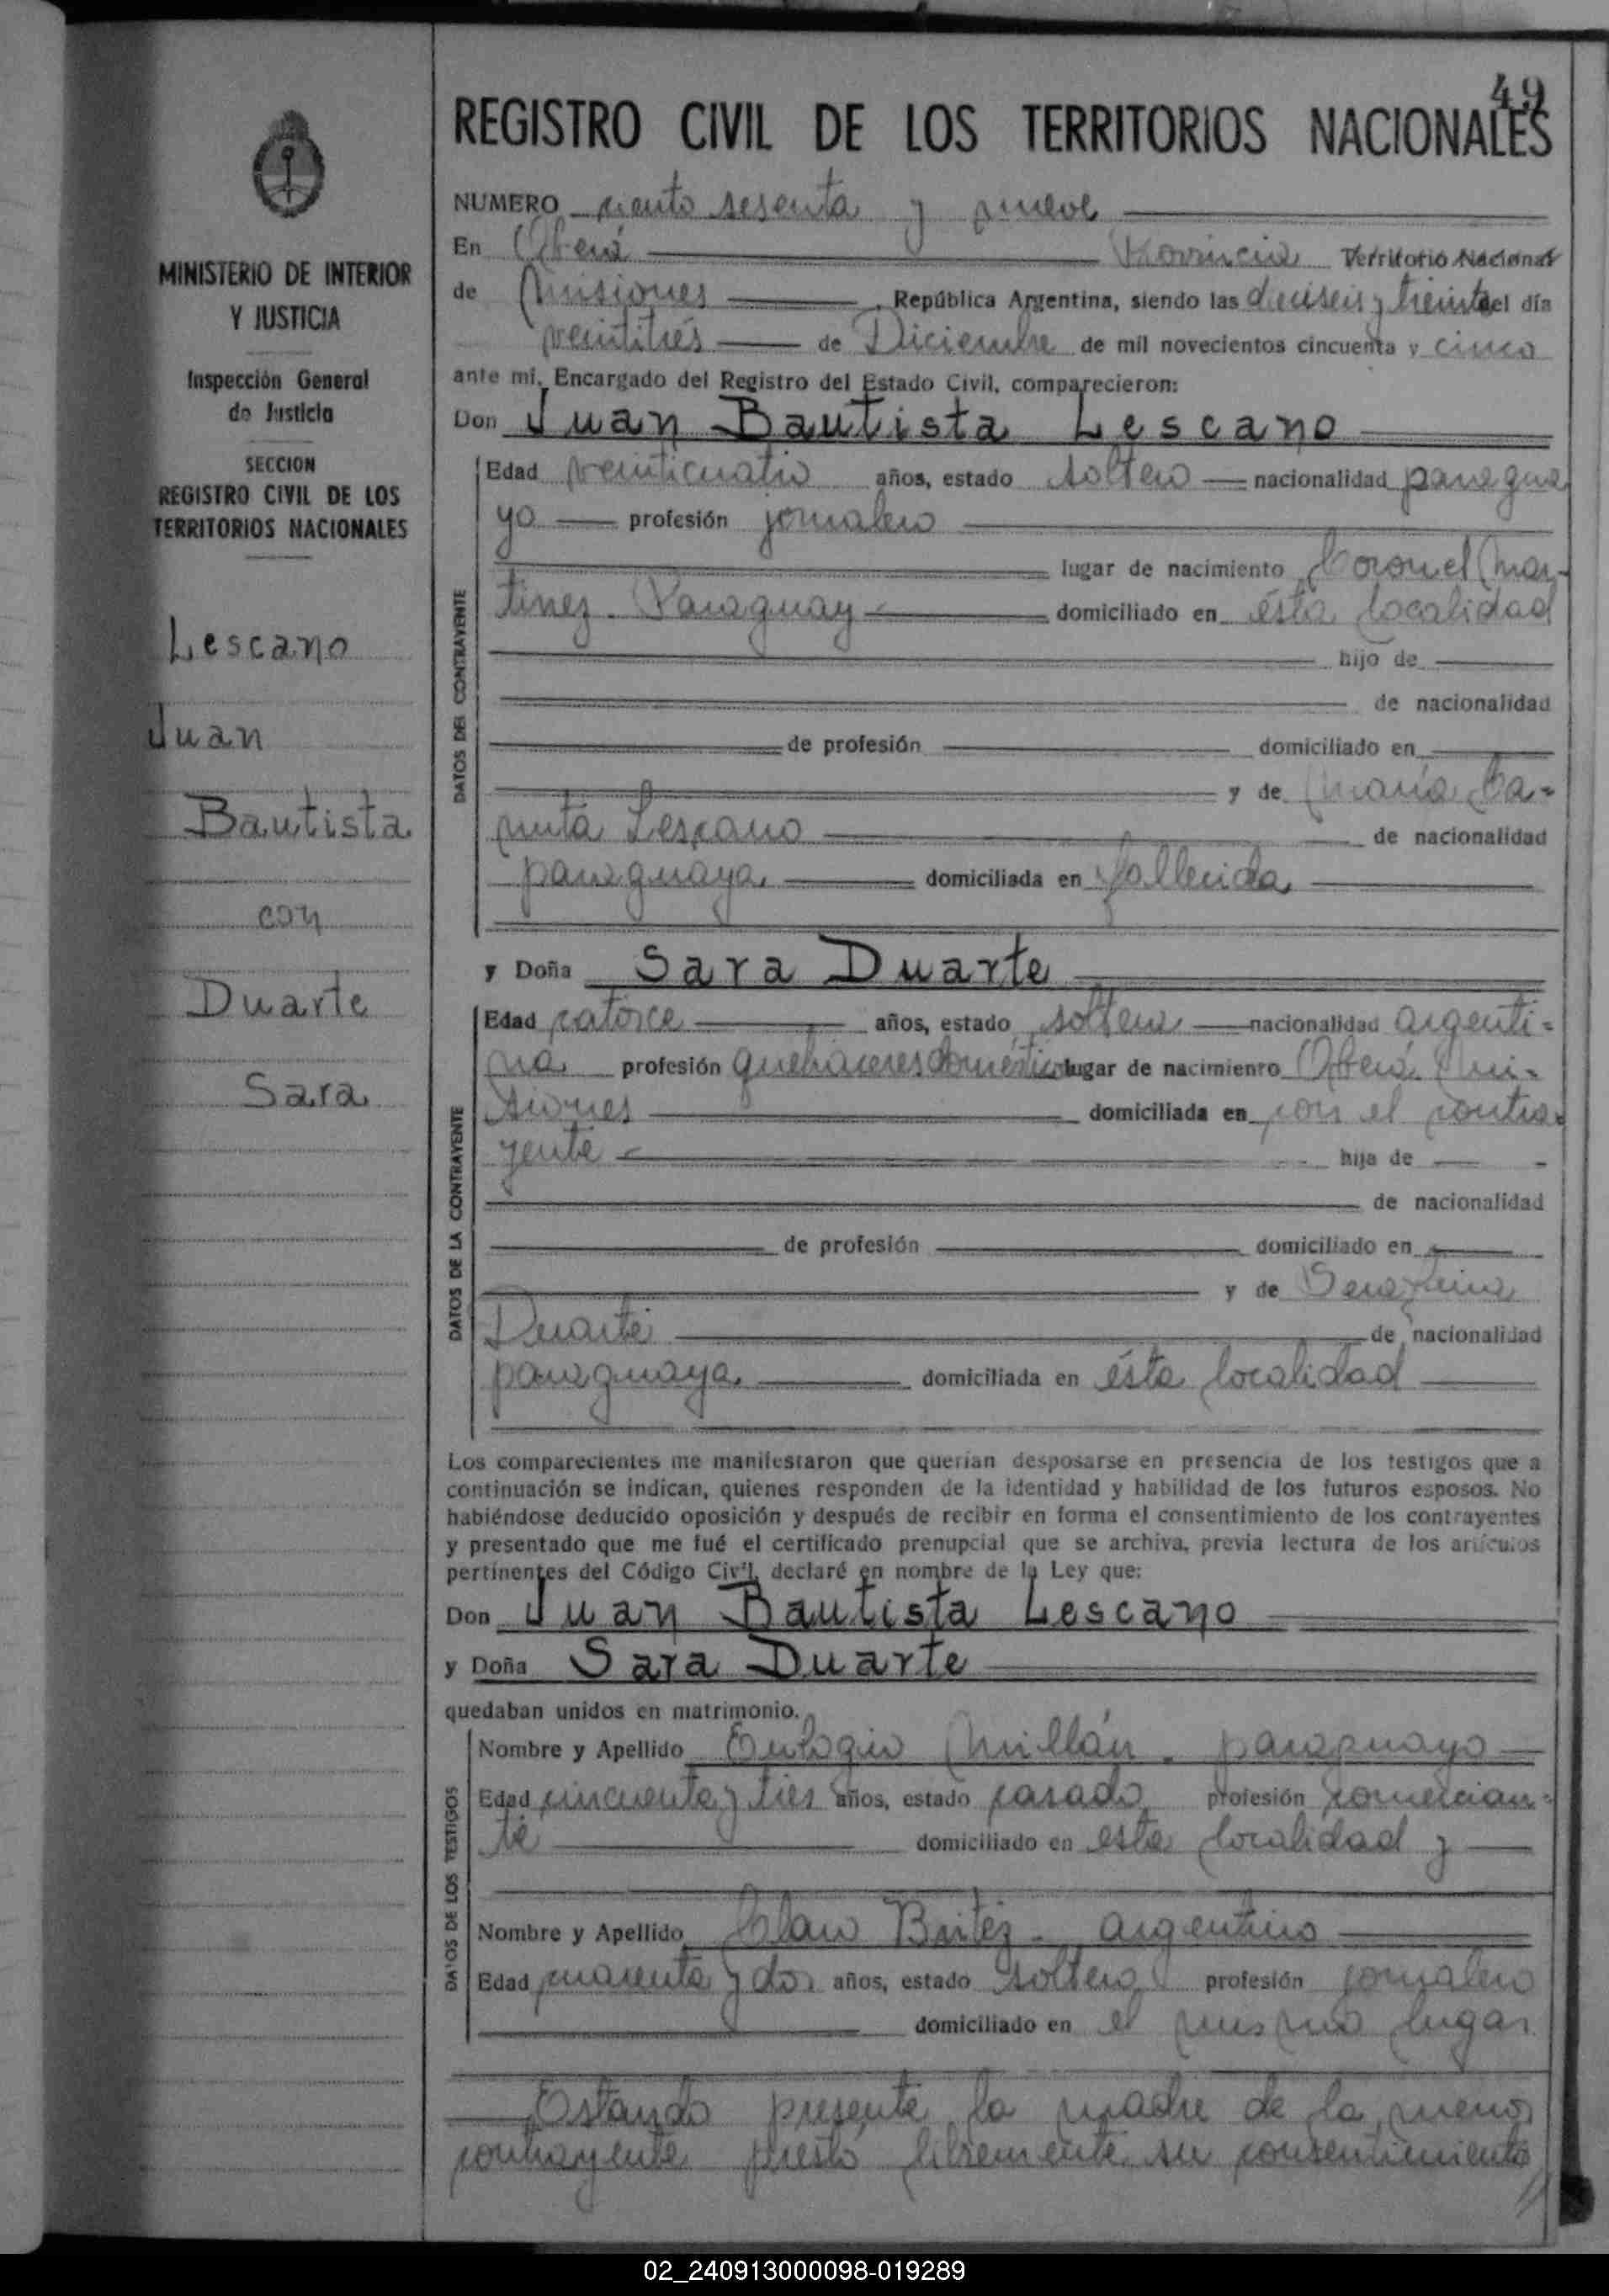 49
REGISTRO CIVIL DE LOS TERRITORIOS NACIONALES
MINISTERIO DE INTERIOR
Y JUSTICIA
Inspección General
de Justicia
SECCION
REGISTRO CIVIL DE LOS
TERRITORIOS NACIONALES
Lescano
Juan
Bautista
con
Duarte
Sara
NUMERO ciento sesenta y nueve
En Oberá Provincia Territorio Nacional
de Misiones , República Argentina, siendo las dieciseis y treinta del día
veintitrés de Diciembre de mil novecientos cincuenta y cinco
ante mí, Encargado del Registro del Estado Civil, comparecieron:
Don Juan Bautista Lescano
DATOS DEL CONTRAYENTE
Edad veinticuatro años, estado soltero nacionalidad paragua
yo profesión jornalero
lugar de nacimiento Coronel Mar-
tinez - Paraguay domiciliado en ésta localidad
hijo de
de nacionalidad
de profesión domiciliado en
y de María Ca-
nuta Lescano de nacionalidad
paraguaya domiciliada en fallecida
y Doña Sara Duarte
DATOS DE LA CONTRAYENTE
Edad catorce años, estado soltera nacionalidad argenti=
na profesión quehaceres domésticos lugar de nacimiento Oberá Mi-
siones domiciliada en con el contra
yente hija de
de nacionalidad
de profesión domiciliado en
y de Serafina
Duarte de nacionalidad
paraguaya domiciliada en ésta localidad
Los comparecientes me manifestaron que querían desposarse en presencia de los testigos que a
continuación se indican, quienes responden de la identidad y habilidad de los futuros esposos. No
habiéndose deducido oposición y después de recibir en forma el consentimiento de los contrayentes
y presentado que me fué el certificado prenupcial que se archiva, previa lectura de los artículos
pertinentes del Código Civil, declaré en nombre de la Ley que:
Don Juan Bautista Lescano
y Doña Sara Duarte
quedaban unidos en matrimonio.
DATOS DE LOS TESTIGOS
Nombre y Apellido Eulogio Millán - paraguayo
Edad cincuenta y tres años, estado casado profesión comercian=
te domiciliado en esta localidad y
Nombre y Apellido Claro Britez - argentino
Edad cuarenta y dos años, estado soltero profesión jornalero
domiciliado en el mismo lugar
Estando presente la madre de la menor
contrayente prestó libremente su consentimiento
02_240913000098-019289